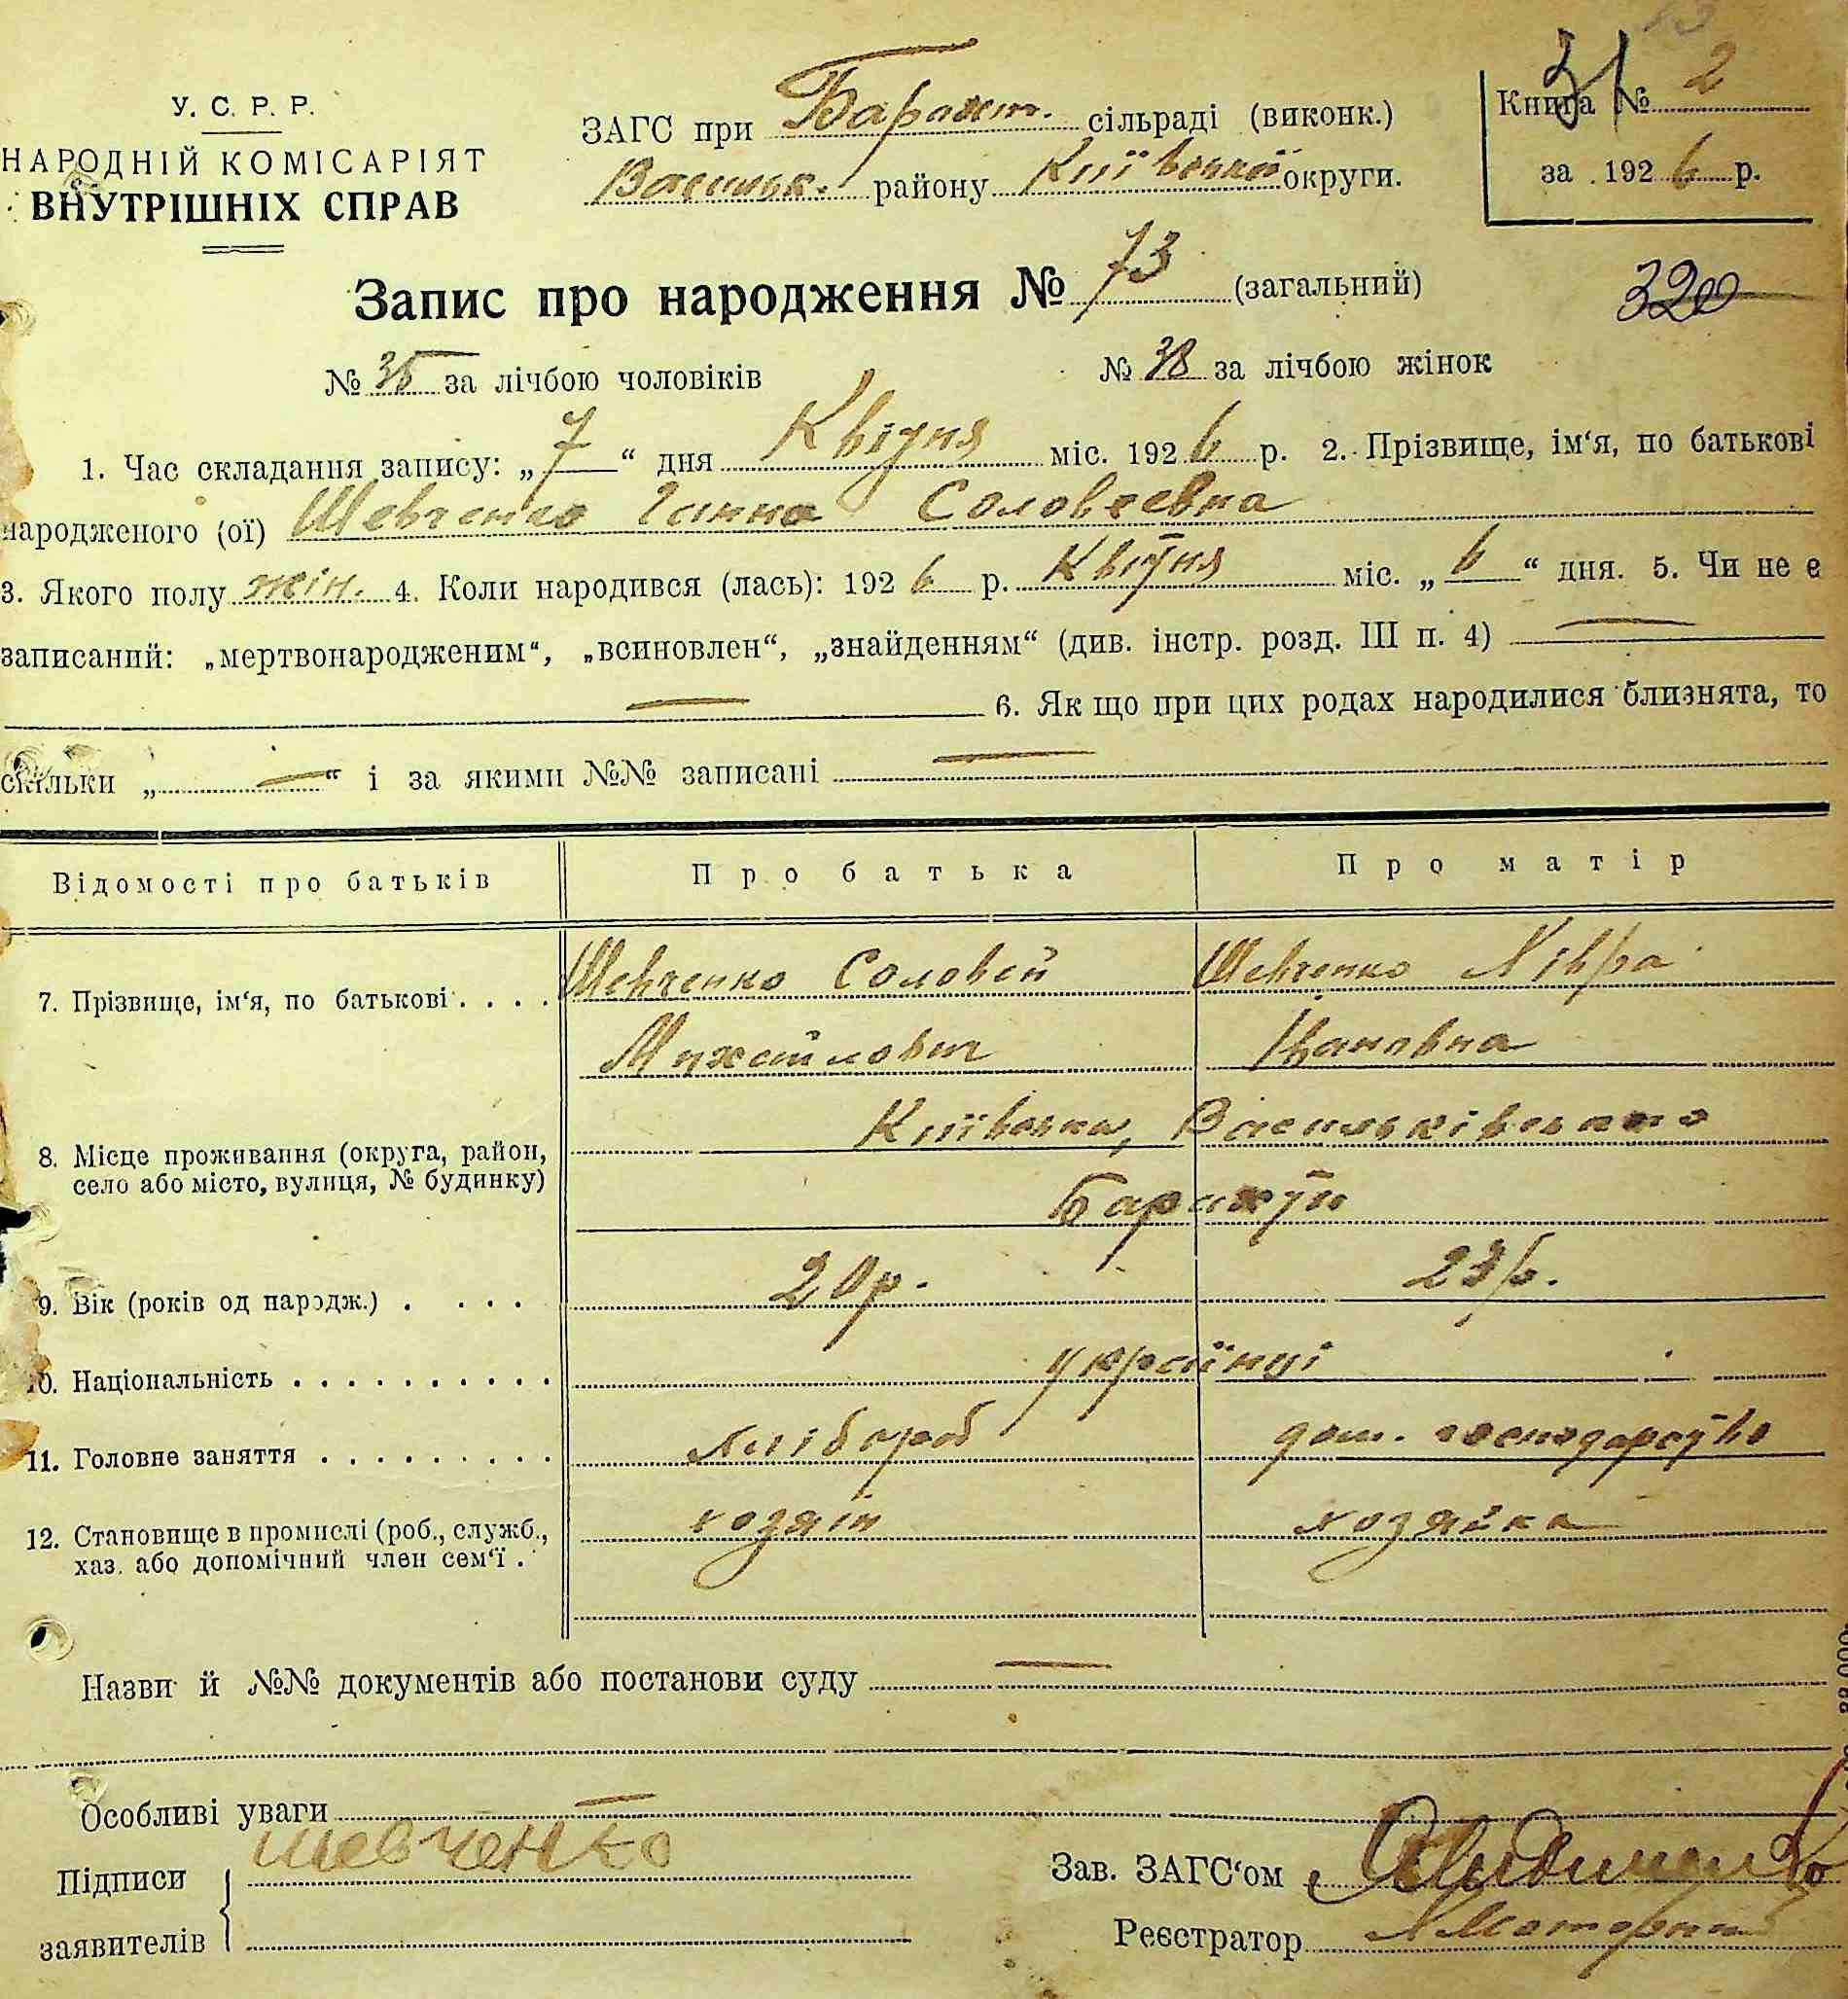 У. С. Р. Р.
НАРОДНІЙ КОМІСАРІЯТ
ВНУТРІШНІХ СПРАВ
ЗАГС при Барахт. сільраді (виконк.)
Васильк. району Київської округи.
Книга № 2
31
за 1926 р.
Запис про народження № 73 (загальний)
320
№ 35 за лічбою чоловіків № 38 за лічбою жінок
1. Час складання запису: „7“ дня Квітня міс. 1926 р. 2. Прізвище, ім‘я, по батькові
народженого (ої) Шевченко Ганна Соловеевна
3. Якого полу жін. 4. Коли народився (лась): 1926 р. Квітня міс. „6“ дня. 5. Чи не є
записаний: „мертвонародженим“, „всиновлен“, „знайденням“ (див. інстр. розд. III п. 4) —
— 6. Як що при цих родах народилися близнята, то
скільки „—“ і за якими №№ записані —
Відомості про батьків Про батька Про матір
7. Прізвище, ім‘я, по батькові . . . . Шевченко Соловей Шевченко Хівря
Михайлович Івановна
8. Місце проживання (округа, район, Київська, Васильківського
село або місто, вулиця, № будинку) Барахти
9. Вік (років од народж.) . . . . 20 р. 23 р.
10. Національність . . . . . . . . . . українці
11. Головне заняття . . . . . . . . . хлібороб дом. господарство
12. Становище в промислі (роб., служб., хозяін хозяйка
хаз. або допомічний член сем‘ї .
Назви й №№ документів або постанови суду —
Особливі уваги —
Підписи шевченко
заявителів
Зав. ЗАГС‘ом
Реєстратор